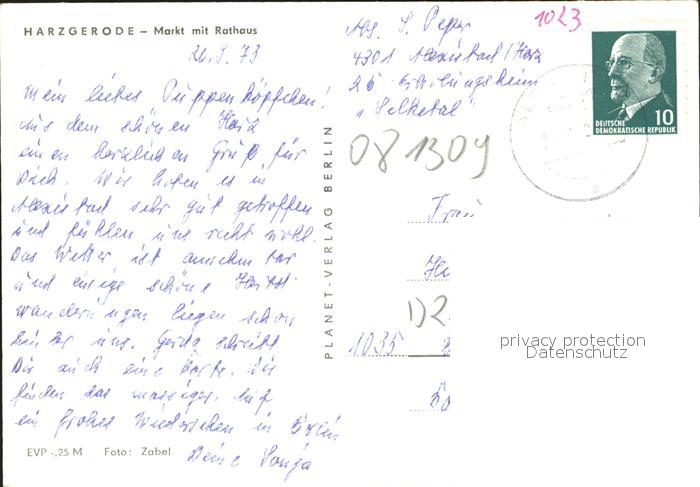 HARZGERODE – Markt mit Rathaus
73
Mein liebes Puppenköpfchen!
Aus dem schönen Harz
einen herzlichen Gruß für
Dich. Wir haben es in
Alexisbad sehr gut getroffen
und fühlen uns recht wohl.
Das Wetter ist annehmbar
und einige schöne Herbst-
wanderungen liegen schon
hinter uns. schreibt
Dir auch eine Karte. Wir
finden das Auf
ein frohes Wiedersehen in Berlin
Deine Sonja
EVP -,25 M Foto: Zabel
PLANET-VERLAG BERLIN
Abs. S. Peper
4301 Alexisbad / Harz
Erholungsheim
"Selketal"
1023
081309
DEUTSCHE
DEMOKRATISCHE REPUBLIK
10
Frau
D2
1035
privacy protection
Datenschutz